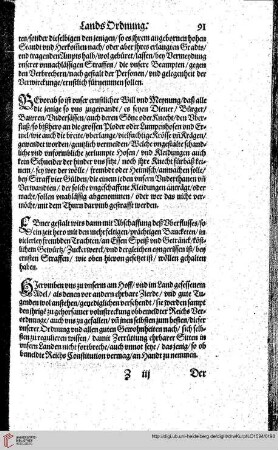 Lands Ordnung. 91
ten/sonder dieselbigen den jenigen/so es ihrem angebornen hohen
Standt vnd Herkommen nach/oder aber ihres erlangten Gradts/
vnd tragenden Ampts halb/wol gebüret/lassen/bey Vermeydung
vnserer vnnachlässigen Straffen/die vnsere Beampten/gegen
den Verbrechern/nach gestalt der Personen/vnd gelegenheit der
Verwirckung/ernstlich fürnemmen sollen.
Bevorab ist vnser ernstlicher Will vnd Meynung/daß alle
die jenige so vns zugewandt/es seyen Diener/Bürger/
Bawren/Vndersässen/auch deren Söne oder Knecht/den Vber-
fluß/so bißhero an die grossen Ploder oder Lumpenhosen
wie auch die breite/vberlange/vielfaltige Krösse
gewendet worden/gentzlich vermeiden/Welche vngestalte schand-
liche vnd vnformliche zerlumpte Hosen/vnd Kleidungen auch
kein Schneider der hinder vns sitzt/noch ihre Knecht fürbaß kei-
nem/sey wer der wölle/frembder oder Heimisch/anmachen solle/
bey Straff vier Gülden/die einem jeden vnsern Vnderthanen vnd
Verwandten/der solche vngeschaffene Kleidungen anträgt/oder
macht/sollen vnabläßig abgenommen/oder wer das nicht ver-
möcht/mit dem Thurn darumb gestrafft werden.
Ebner gestalt wirs dann mit Abschaffung deß Vberfluses/so
ein zeit hero mit den mehrseitigen/prächtigen Bancketen/in
vielerley frembden Trachten/an Essen Speiß vnd Getränck/köst-
lichen Gewürtz/Zuckerwerck/vnd dergleichen eingerissen ist/bey
ernsten Straffen/wie oben hievon gesetzt ist/wöllen gehalten
haben.
Hierumben vns zu vnserm am Hoff/vnd im Land gesessenem
Adel/als denen vor andern ehrbare Zierde/vnd gute Tu-
genden wol anstehen/gentzlichen versehende/sie werden sampt
den ihrigen/zu gehorsamer vollnstreckung obbemeldter Reichs Ver-
ordnung/auch vns zu gefallen/vnd ihnen selbsten zum besten/dieser
vnserer Ordnung vnd allen guten Gewohnheiten nach/sich selb-
sten zu regulieren wissen/damit Zerrüttung ehrbarer Sitten in
vnsern Landen nicht fortbreche/auch vnnot seye/das jenig/so ob-
bemeldte Reichs Constitution vermag/an Handt zu nemmen.
Z iij Der